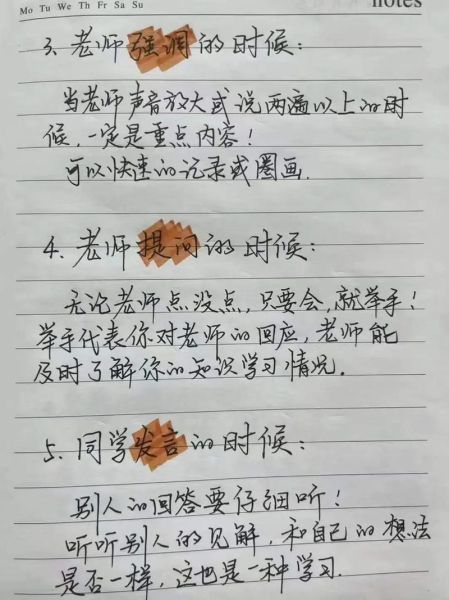 Mo Tu We Th Fr Sa Su
notes
3. 老师强调的时候：
当老师声音放大或说两遍以上的时
候，一定是重点内容！
可以快速的记录或圈画.
4. 老师提问的时候：
无论老师点没点，只要会，就举手！
举手代表你对老师的回应，老师能
及时了解你的知识学习情况.
5. 同学发言的时候：
别人的回答要仔细听！
听听别人的见解，和自己的想法
是否一样，这也是一种学习.